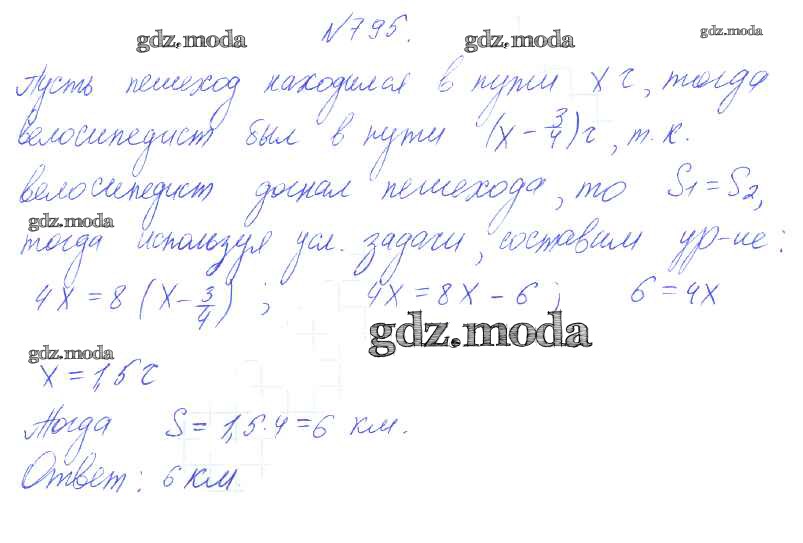 №795.
gdz.moda gdz.moda gdz.moda
Пусть пешеход находился в пути х ч, тогда
велосипедист был в пути (х - 3/4) ч, т.к.
велосипедист догнал пешехода, то S1 = S2,
gdz.moda
тогда используя усл. задачи, составим ур-ие:
4х = 8 (х - 3/4) ; 4х = 8х - 6 ; 6 = 4х
gdz.moda
gdz.moda
х = 1,5 ч
Тогда S = 1,5·4 = 6 км.
Ответ: 6 км.